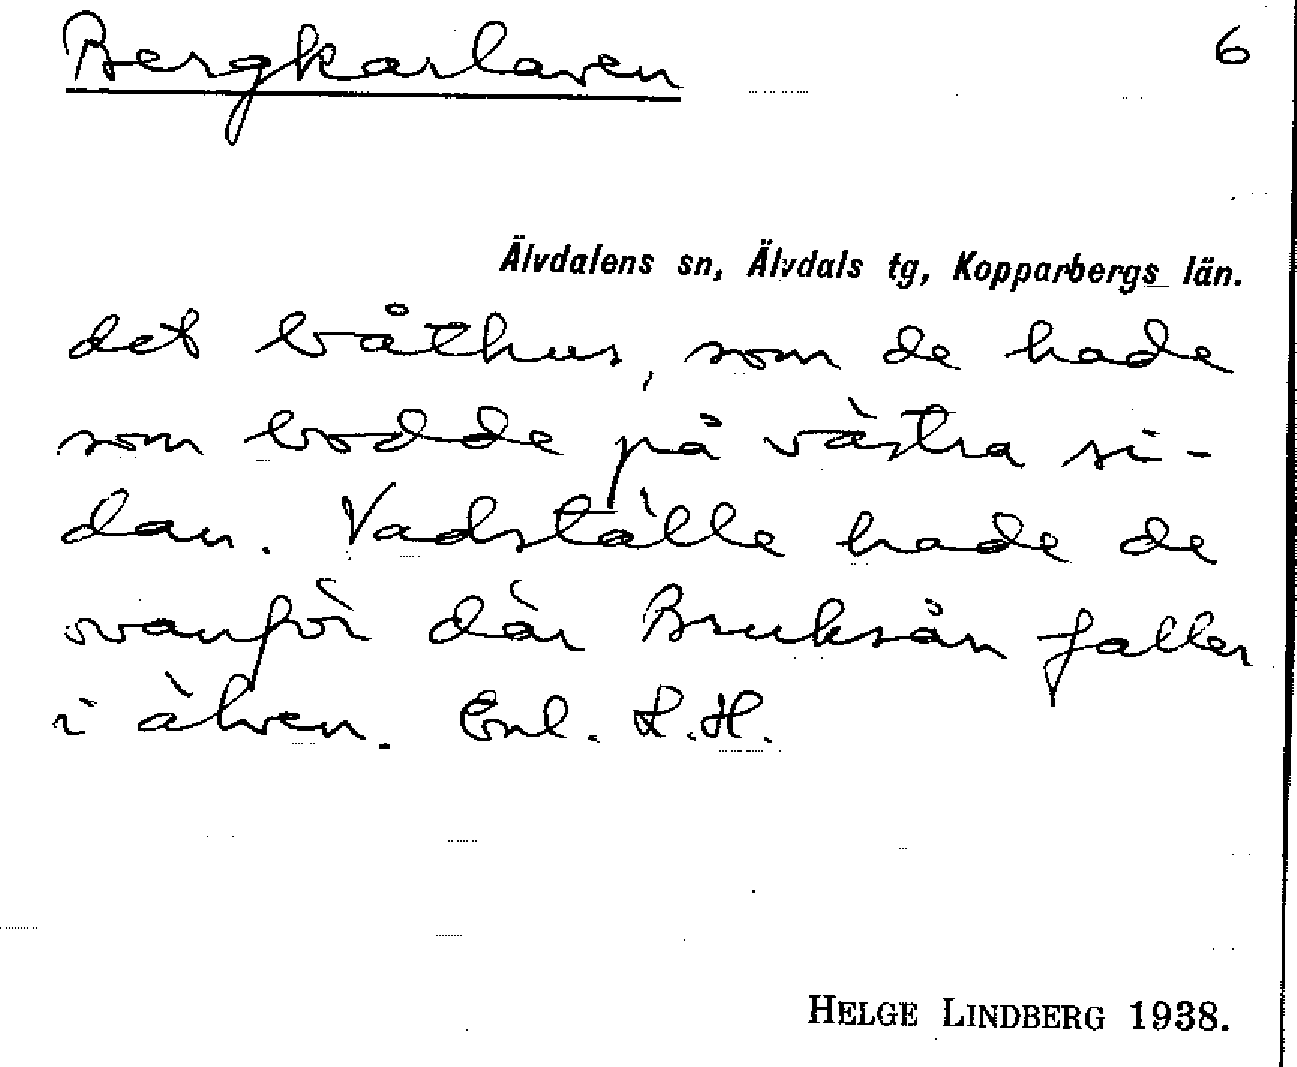 Bergkarlaven 6
Älvdalens sn, Älvdals tg, Kopparbergs län.
det båthus, som de hade
som bodde på västra si-
dan. Vadställe hade de
ovanför där Bruksån faller
i älven. Enl. L.H.
HELGE LINDBERG 1938.